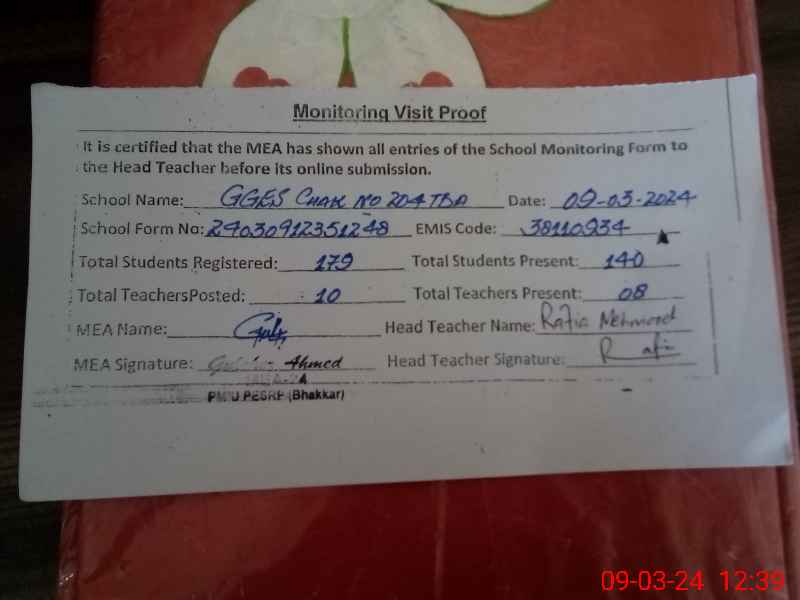 Monitoring Visit Proof
It is certified that the MEA has shown all entries of the School Monitoring Form to
the Head Teacher before its online submission.
School Name: GGES Chak No 204 TDA Date: 09-03-2024
School Form No: 24030912351248 EMIS Code: 38110934
Total Students Registered: 179 Total Students Present: 140
Total TeachersPosted: 10 Total Teachers Present: 08
MEA Name: Head Teacher Name: Rafia Mehmood
MEA Signature: Ahmed Head Teacher Signature:
PMIU PESRP (Bhakkar)
09-03-24 12:39